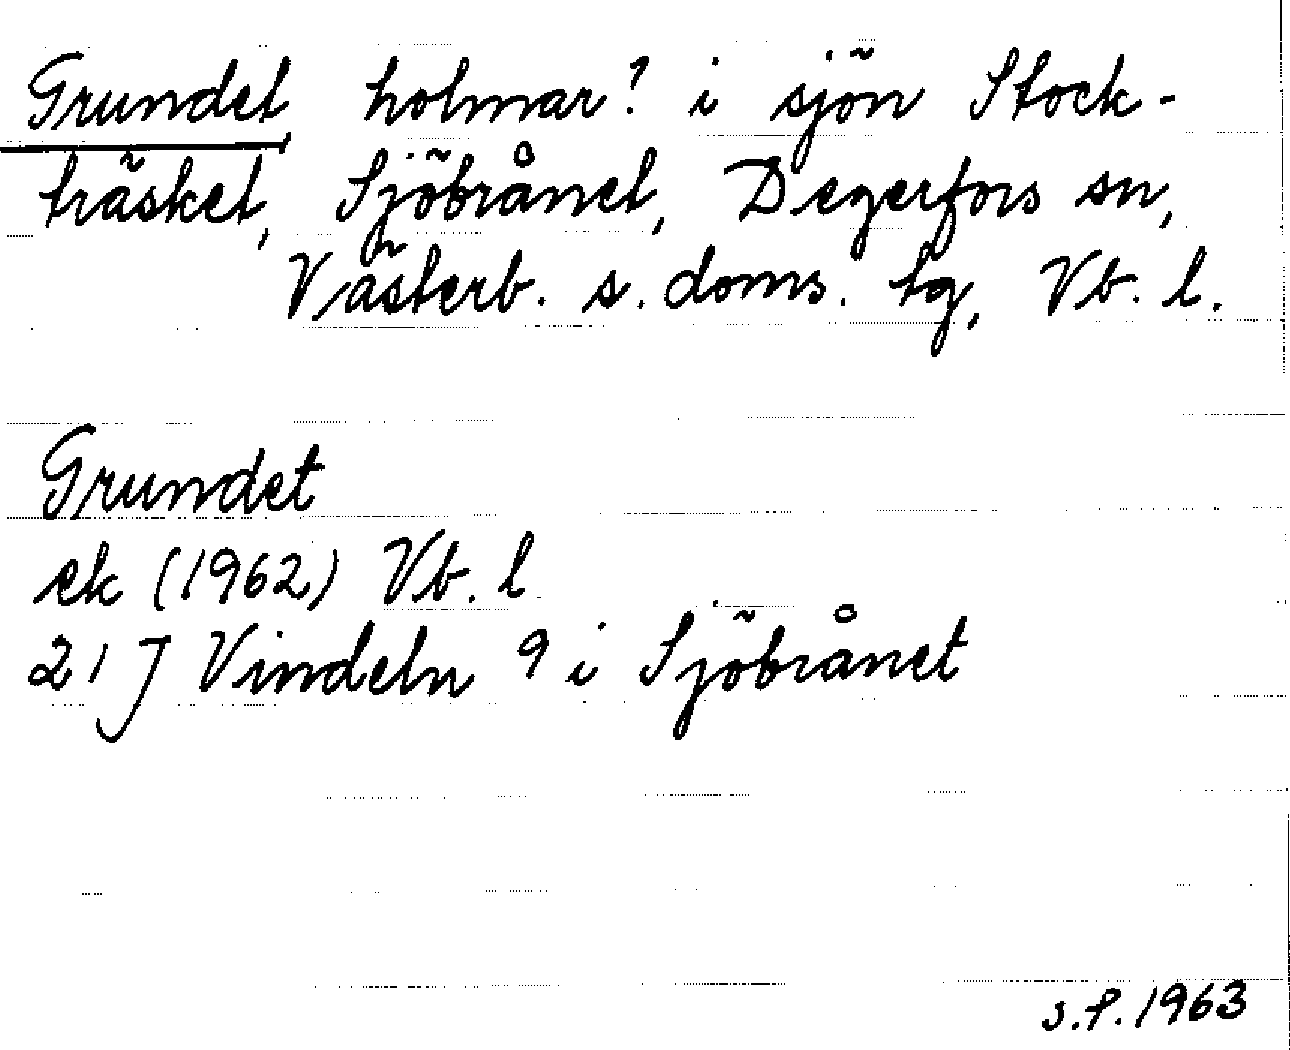 Grundet, holmar? i sjön Stock-
träsket, Sjöbrånet, Degerfors sn,
Västerb. s. doms. tg, Vb. l.
Grundet
ek (1962) Vb. l
21 J Vindeln 9 i Sjöbrånet
S.P. 1963